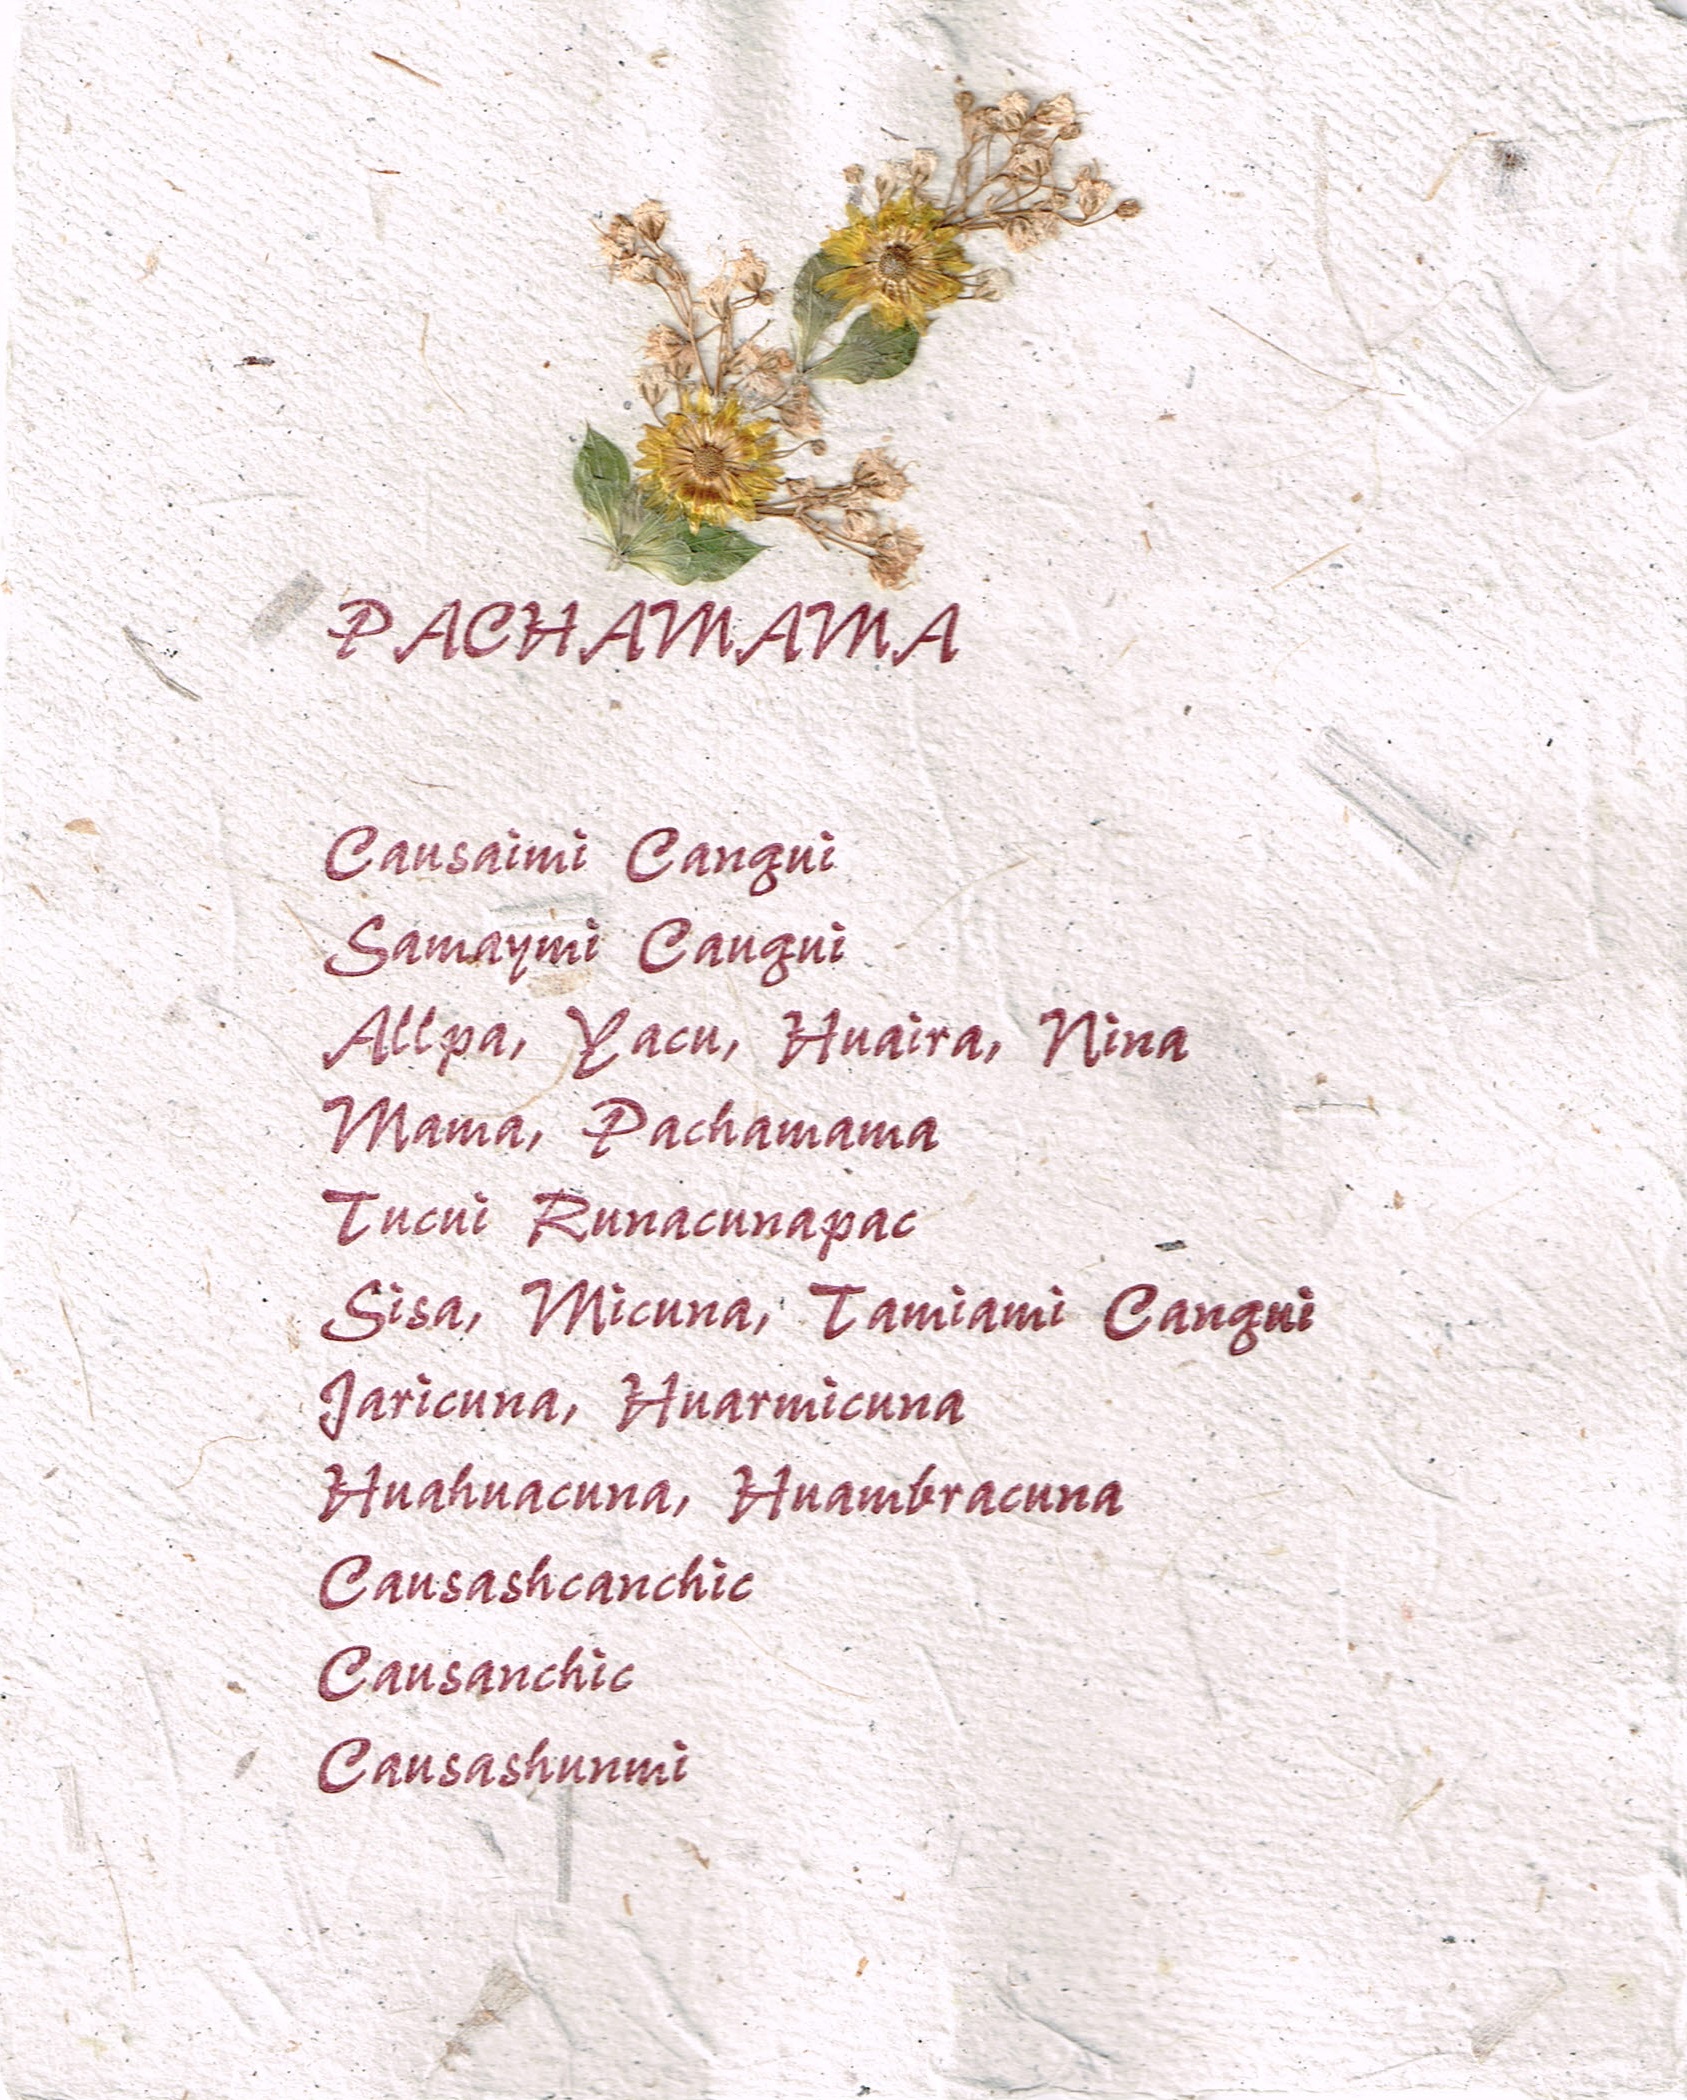 PACHAMAMA
Causaimi Cangui
Samaymi Caugui
Allpa, Yacu, Huaira, Nina
Mama, Pachamama
Tucui Runacunapac
Sisa, Micuna, Tamiami Cangui
Jaricuna, Huarmicuna
Huahuacuna, Huambracuna
Causashcanchic
Causanchic
Causashunmi